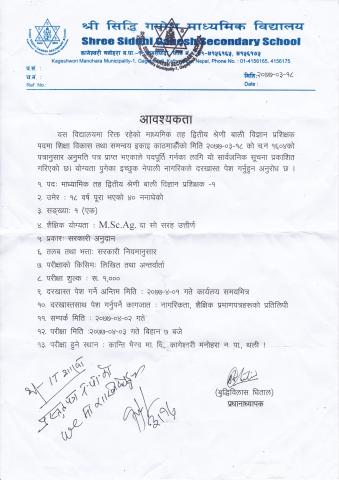 श्री सिद्धि गणेश माध्यमिक विद्यालय
Shree Siddhi Ganesh Secondary School
Kageshwori Manohara Municipality-1, Nepal, Phone No : 01-4156165, 4156175
प.सं :
च.नं. :
Ref. No.:
मितिः २०७७-०३-१८
Date :
आवश्यकता
यस विद्यालयमा रिक्त रहेको माध्यमिक तह द्वितीय श्रेणी बाली विज्ञान प्रशिक्षक
पदमा शिक्षा विकास तथा समन्वय इकाइ काठमाडौंको मिति २०७७-०३-१८ को च.नं १६०४को
पत्रानुसार अनुमति पत्र प्राप्त भएकाले पदपूर्ति गर्नका लागि यो सार्वजनिक सूचना प्रकाशित
गरिएको छ। योग्यता पुगेका इच्छुक नेपाली नागरिकले दरखास्त पेश गर्नुहुन अनुरोध छ ।
१ पदः माध्यामिक तह द्वितीय श्रेणी बाली विज्ञान प्रशिक्षक -१
२ उमेर : १८ वर्ष पूरा भएको ४० ननाघेको
३ सङ्ख्या: १ (एक)
४ शैक्षिक योग्यता : M.Sc.Ag. वा सो सरह उत्तीर्ण
५ प्रकारः सरकारी अनुदान
६ तलब तथा भत्ताः सरकारी नियमानुसार
७ परीक्षाको किसिमः लिखित तथा अन्तर्वार्ता
८ परीक्षा शुल्क : रु. १,०००
९ दरखास्त पेश गर्ने अन्तिम मिति : २०७७-४-०१ गते कार्यालय समयभित्र
१० दरखास्तसाथ पेश गर्नुपर्ने कागजात : नागरिकता, शैक्षिक प्रमाणपत्रहरूको प्रतिलिपी
११ सम्पर्क मिति : २०७७-०४-०२ गते
१२ परीक्षा मिति :२०७७-०४-०३ गते बिहान ७ बजे
१३ परीक्षा हुने स्थान : कान्ति भैरव मा. वि., कागेश्वरी मनोहरा न पा, थली !
(बुद्धिविलास धिताल)
प्रधानाध्यापक